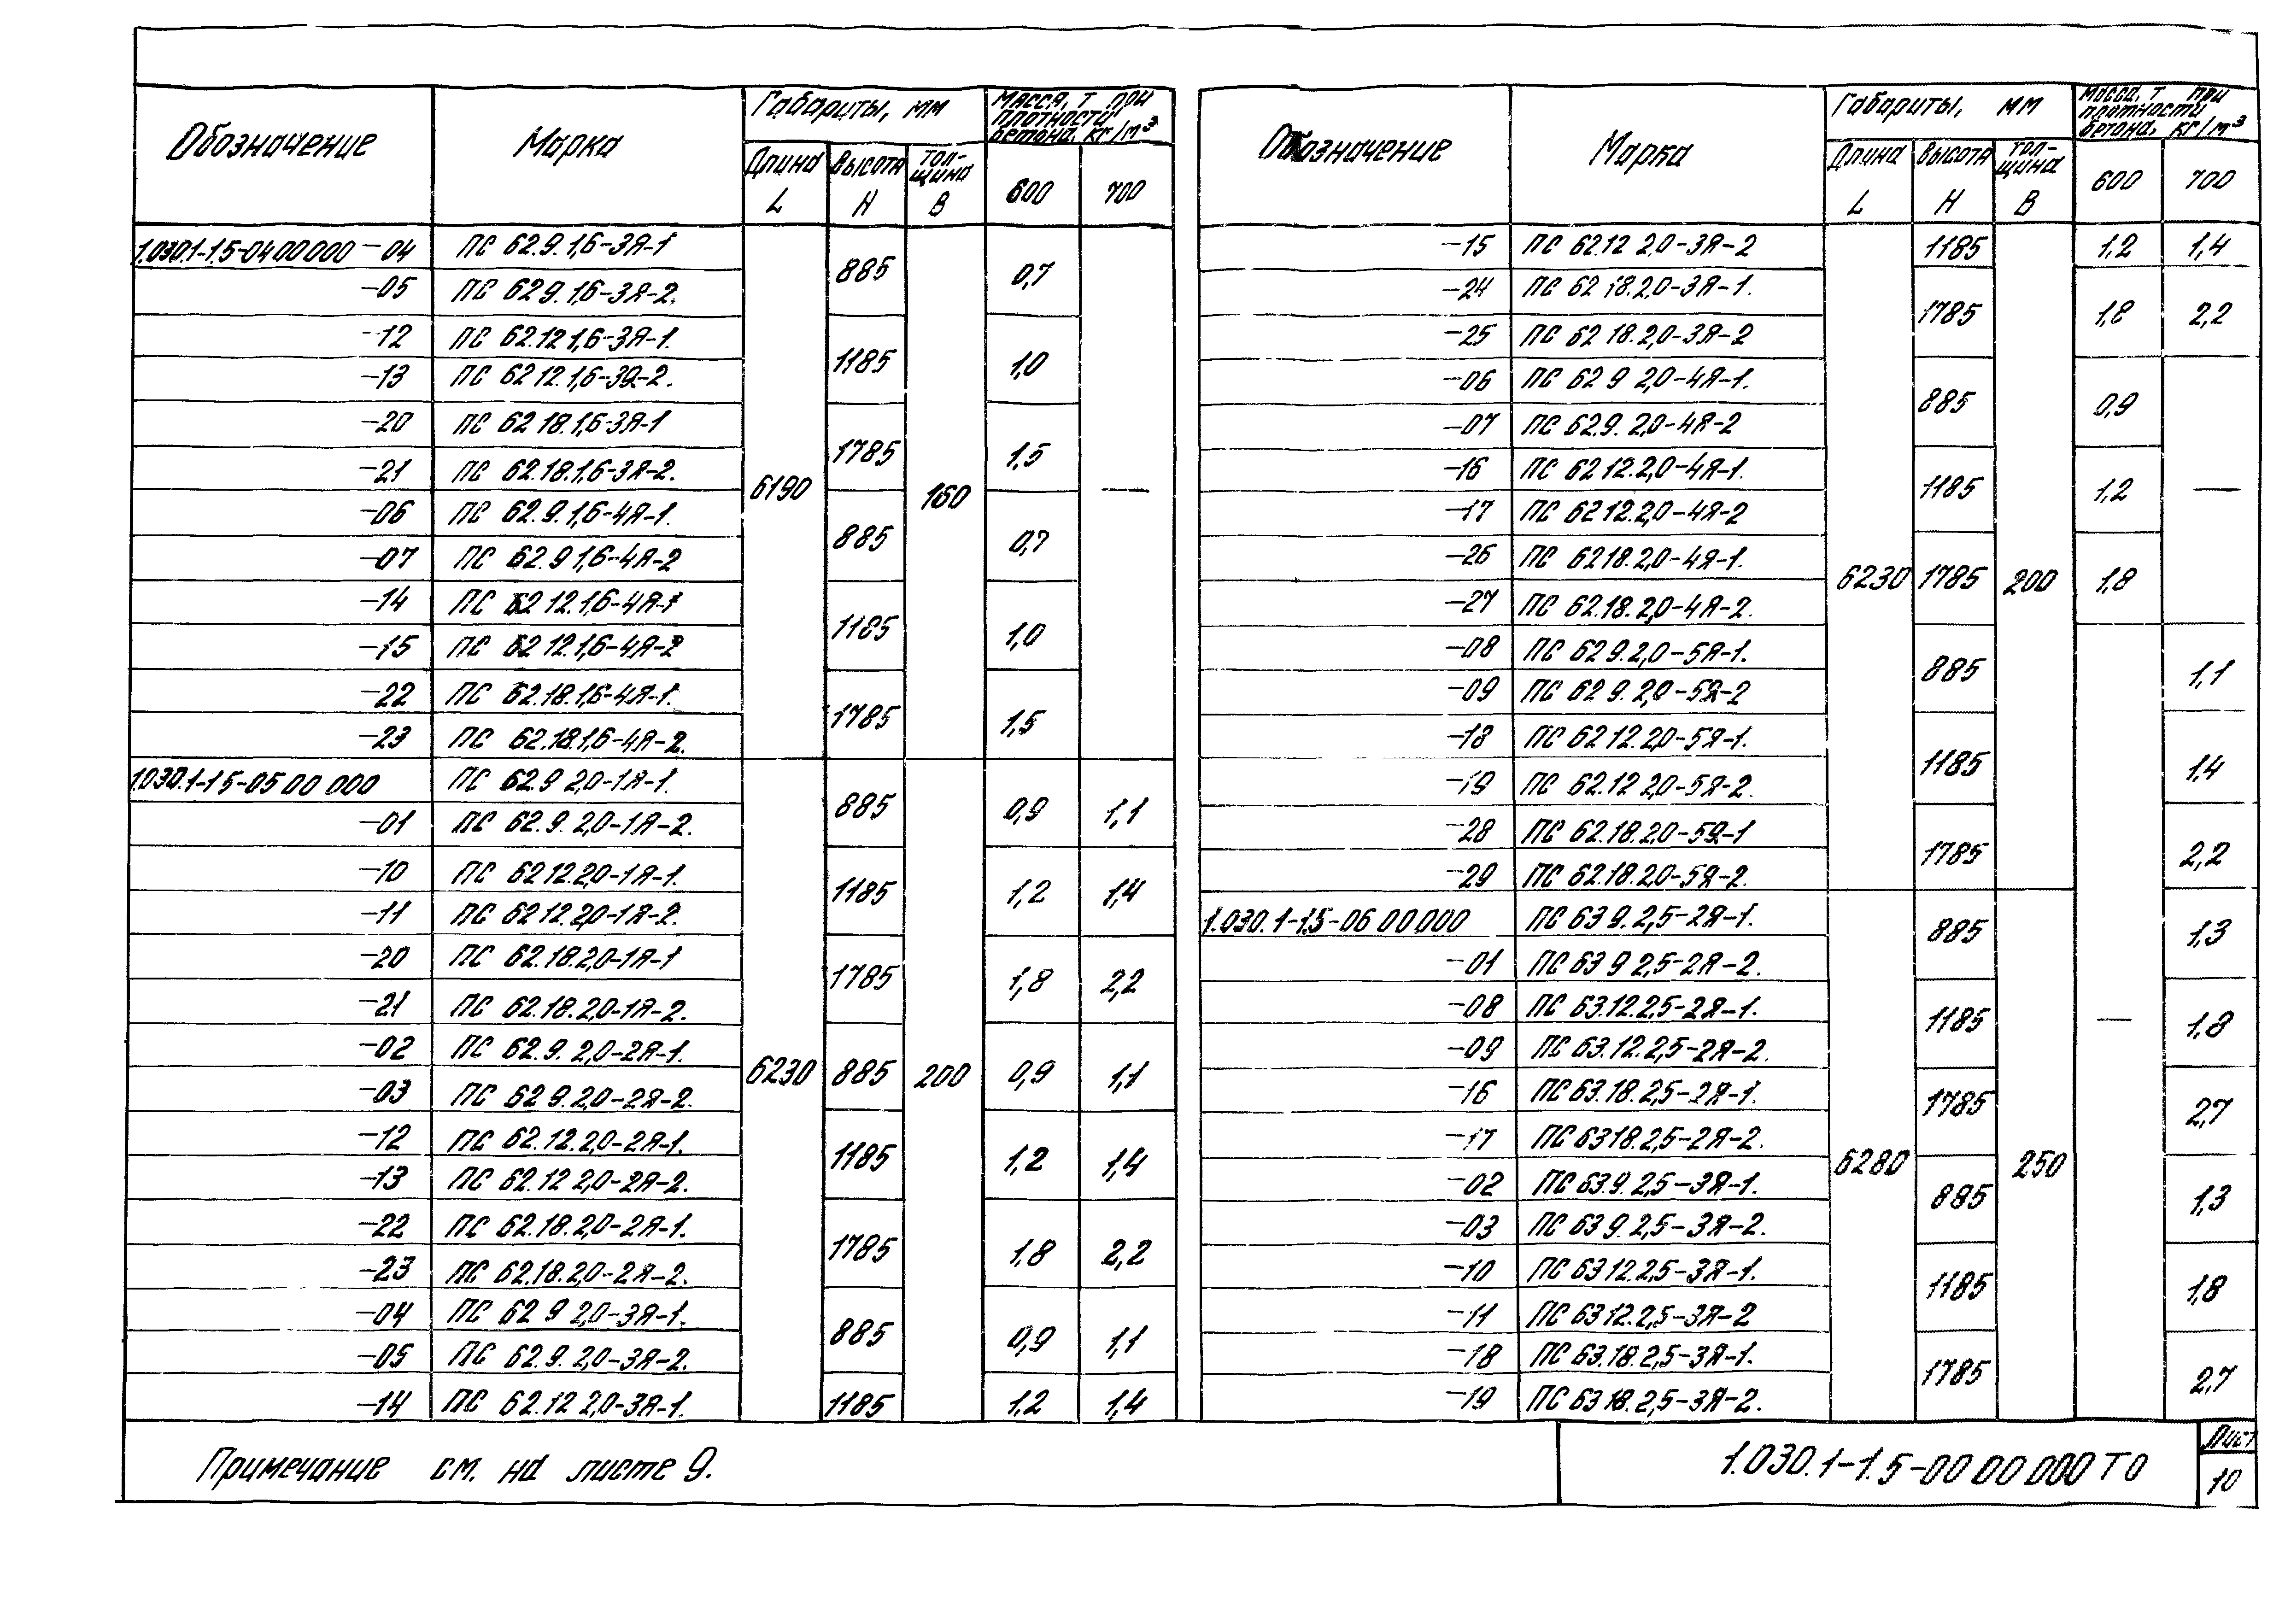 Обозначение Марка Габариты, мм Масса, т при плотности бетона, кг/м³
Длина L Высота H Толщина B 600 700
1.030.1-1.5-04 00 000 -04 ПС 62.9.1,6-3Я-1 6190 885 160 0,7 —
-05 ПС 62 9.1,6-3Я-2.
-12 ПС 62.12 1,6-3Я-1. 1185 1,0
-13 ПС 62 12.1,6-3Я-2.
-20 ПС 62 18.1,6-3Я-1 1785 1,5
-21 ПС 62.18.1,6-3Я-2.
-06 ПС 62.9.1,6-4Я-1. 885 0,7
-07 ПС 62.9 1,6-4Я-2
-14 ПС 62 12.1,6-4Я-1 1185 1,0
-15 ПС 62 12.1,6-4Я-2
-22 ПС 62.18.1,6-4Я-1. 1785 1,5
-23 ПС 62.18.1,6-4Я-2.
1.030.1-1 5-05 00 000 ПС 62.9 2,0-1Я-1. 6230 885 200 0,9 1,1
-01 ПС 62.9. 2,0-1Я-2.
-10 ПС 62 12.2,0-1Я-1. 1185 1,2 1,4
-11 ПС 62 12.2,0-1Я-2.
-20 ПС 62.18.2,0-1Я-1 1785 1,8 2,2
-21 ПС 62.18.2,0-1Я-2.
-02 ПС 62.9. 2,0-2Я-1. 885 0,9 1,1
-03 ПС 62 9.2,0-2Я-2.
-12 ПС 62.12.2,0-2Я-1. 1185 1,2 1,4
-13 ПС 62.12 2,0-2Я-2.
-22 ПС 62.18.2,0-2Я-1. 1785 1,8 2,2
-23 ПС 62.18.2,0-2Я-2.
-04 ПС 62 9 2,0-3Я-1. 885 0,9 1,1
-05 ПС 62.9. 2,0-3Я-2.
-14 ПС 62.12 2,0-3Я-1. 1185 1,2 1,4
Обозначение Марка Габариты, мм Масса, т при плотности бетона, кг/м³
Длина L Высота H Толщина B 600 700
-15 ПС 62.12 2,0-3Я-2 6230 1185 200 1,2 1,4
-24 ПС 62 18.2,0-3Я-1. 1785 1,8 2,2
-25 ПС 62 18.2,0-3Я-2
-06 ПС 62 9 2,0-4Я-1. 885 0,9 —
-07 ПС 62.9. 2,0-4Я-2
-16 ПС 62 12.2,0-4Я-1. 1185 1,2
-17 ПС 62 12.2,0-4Я-2
-26 ПС 62 18.2,0-4Я-1. 1785 1,8
-27 ПС 62.18.2,0-4Я-2.
-08 ПС 62 9.2,0-5Я-1. 885 — 1,1
-09 ПС 62 9.2,0-5Я-2
-18 ПС 62 12.2,0-5Я-1. 1185 1,4
-19 ПС 62.12 2,0-5Я-2.
-28 ПС 62.18.2,0-5Я-1 1785 2,2
-29 ПС 62.18.2,0-5Я-2.
1.030.1-1.5-06 00 000 ПС 63 9.2,5-2Я-1. 6280 885 250 1,3
-01 ПС 63 9 2,5-2Я-2.
-08 ПС 63.12.2,5-2Я-1. 1185 1,8
-09 ПС 63.12.2,5-2Я-2.
-16 ПС 63.18.2,5-2Я-1. 1785 2,7
-17 ПС 63 18.2,5-2Я-2.
-02 ПС 63.9.2,5-3Я-1. 885 1,3
-03 ПС 63 9.2,5-3Я-2.
-10 ПС 63 12.2,5-3Я-1. 1185 1,8
-11 ПС 63 12.2,5-3Я-2
-18 ПС 63.18.2,5-3Я-1. 1785 2,7
-19 ПС 63 18.2,5-3Я-2.
Примечание см. на листе 9.
1.030.1-1.5-00 00 000 ТО
Лист
10